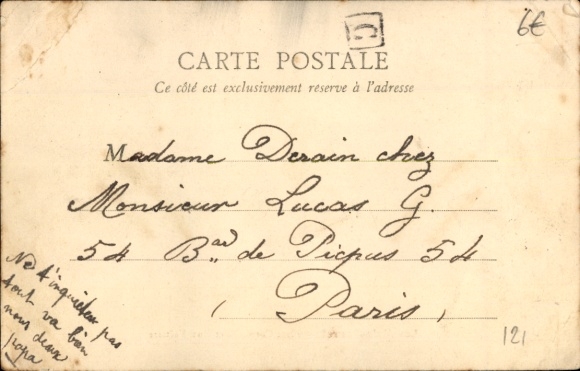 6€
G
CARTE POSTALE
Ce côté est exclusivement reserve à l'adresse
Madame Derain chez
Monsieur Lucas G.
54 Bard de Picpus 54
(Paris)
Ne t'inquietes pas
tout va bien
nous deux
papa
121